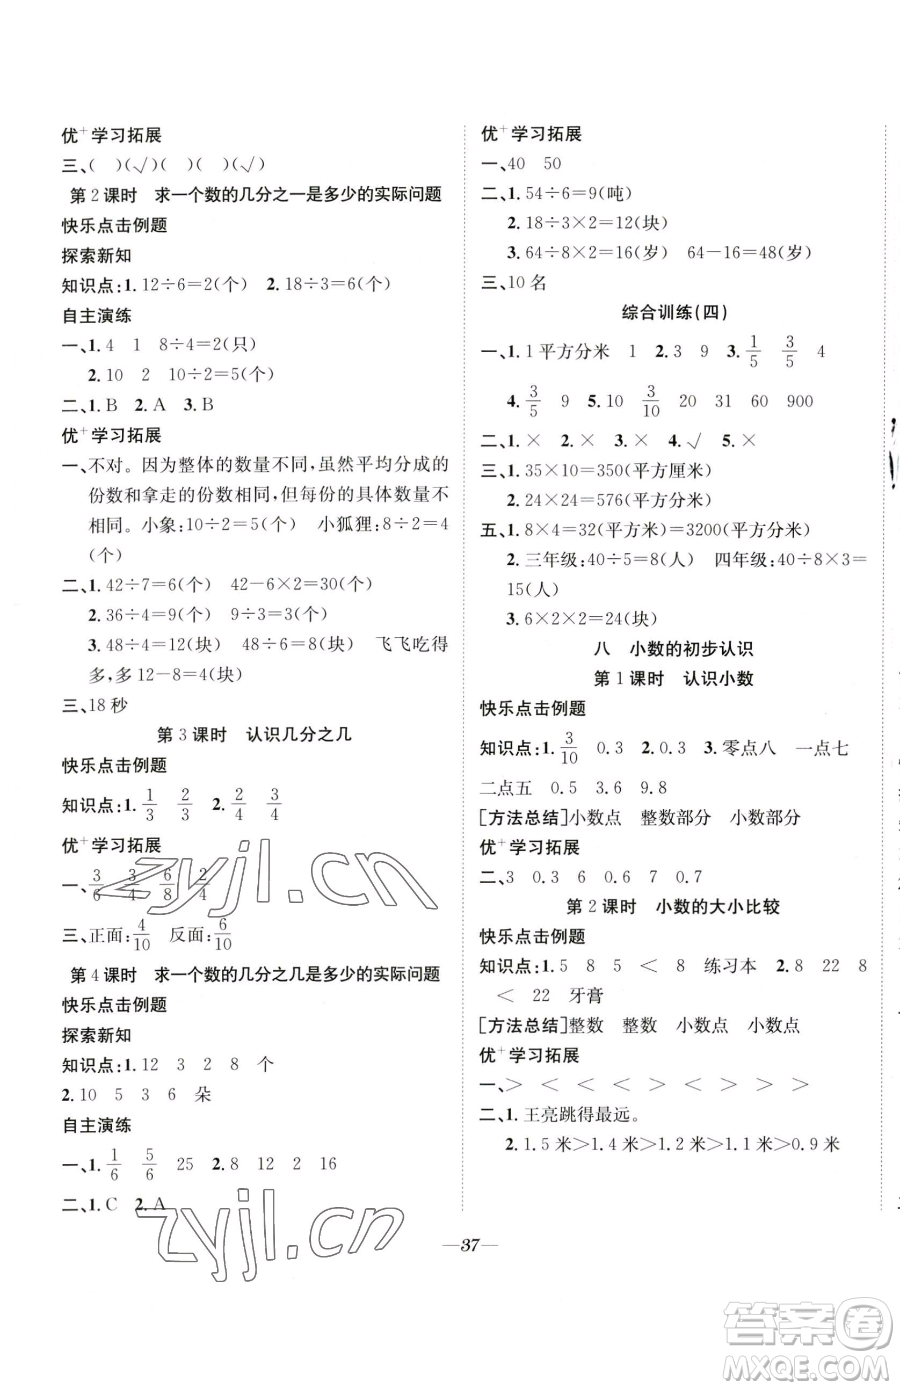 优⁺学习拓展
三、( ) (√) ( ) ( ) (√)
第2课时 求一个数的几分之一是多少的实际问题
快乐点击例题
探索新知
知识点:1. 12÷6=2(个) 2. 18÷3=6(个)
自主演练
一、1. 4 1 8÷4=2(只)
2. 10 2 10÷2=5(个)
二、1. B 2. A 3. B
优⁺学习拓展
一、不对。因为整体的数量不同,虽然平均分成的
份数和拿走的份数相同,但每份的具体数量不
相同。小象:10÷2=5(个) 小狐狸:8÷2=4
(个)
二、1. 42÷7=6(个) 42-6=36(个)
2. 36÷4=9(个) 9÷3=3(个)
3. 48÷4=12(块) 48÷6=8(块) 飞飞吃得
多,多12-8=4(块)
三、18秒
第3课时 认识几分之几
快乐点击例题
知识点:1. 1/3 2/3 2. 2/4 3/4
优⁺学习拓展
一、3/6 3/4 6/8 2/4
三、正面:4/10 反面:6/10
第4课时 求一个数的几分之几是多少的实际问题
快乐点击例题
探索新知
知识点:1. 12 3 2 8 个
2. 10 5 3 6 朵
自主演练
一、1. 1/6 5/6 25 2. 8 12 2 16
二、1. C 2. A
优⁺学习拓展
一、40 50
二、1. 54÷6=9(吨)
2. 18÷3×2=12(块)
3. 64÷8×2=16(岁) 64-16=48(岁)
三、10名
综合训练(四)
一、1. 1平方分米 1 2. 3 9 3. 1/5 3/5 4
4. 3/5 9 5. 10 3/10 20 31 60 900
二、1. × 2. × 3. × 4. √ 5. ×
三、1. 35×10=350(平方厘米)
2. 24×24=576(平方分米)
五、1. 8×4=32(平方米)=3200(平方分米)
2. 三年级:40÷5=8(人) 四年级:40÷8×3=
15(人)
3. 6×2×2=24(块)
八 小数的初步认识
第1课时 认识小数
快乐点击例题
知识点:1. 3/10 0.3 2. 0.3 3. 零点八 一点七
二点五 0.5 3.6 9.8
[方法总结]小数点 整数部分 小数部分
优⁺学习拓展
二、3 0.3 6 0.6 7 0.7
第2课时 小数的大小比较
快乐点击例题
知识点:1. 5 8 5 < 8 练习本 2. 8 22 8
< 22 牙膏
[方法总结]整数 整数 小数点 小数点
优⁺学习拓展
一、> < < < > > > > >
二、1. 王亮跳得最远。
2. 1.5米>1.4米>1.2米>1.1米>0.9米
37
zyjl.cn
zyjl.cn
答案圈
MXQE.COM